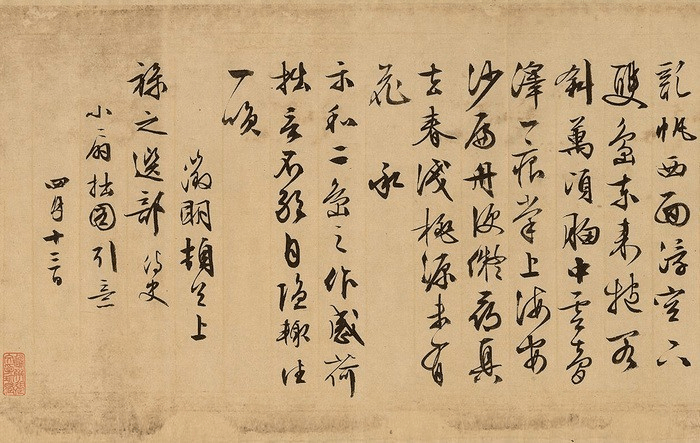 帆西面浮空下
雙島東來
斜萬頃胸中雲夢
澤一痕掌上海安
沙扁舟便儗尋真
去春淺桃源未有
花　承
示和二島之作感荷
拙言不能自隱輒往
一咲
徵明頓首上
祿之選部侍史
小扇拙圖引意
四月十三日